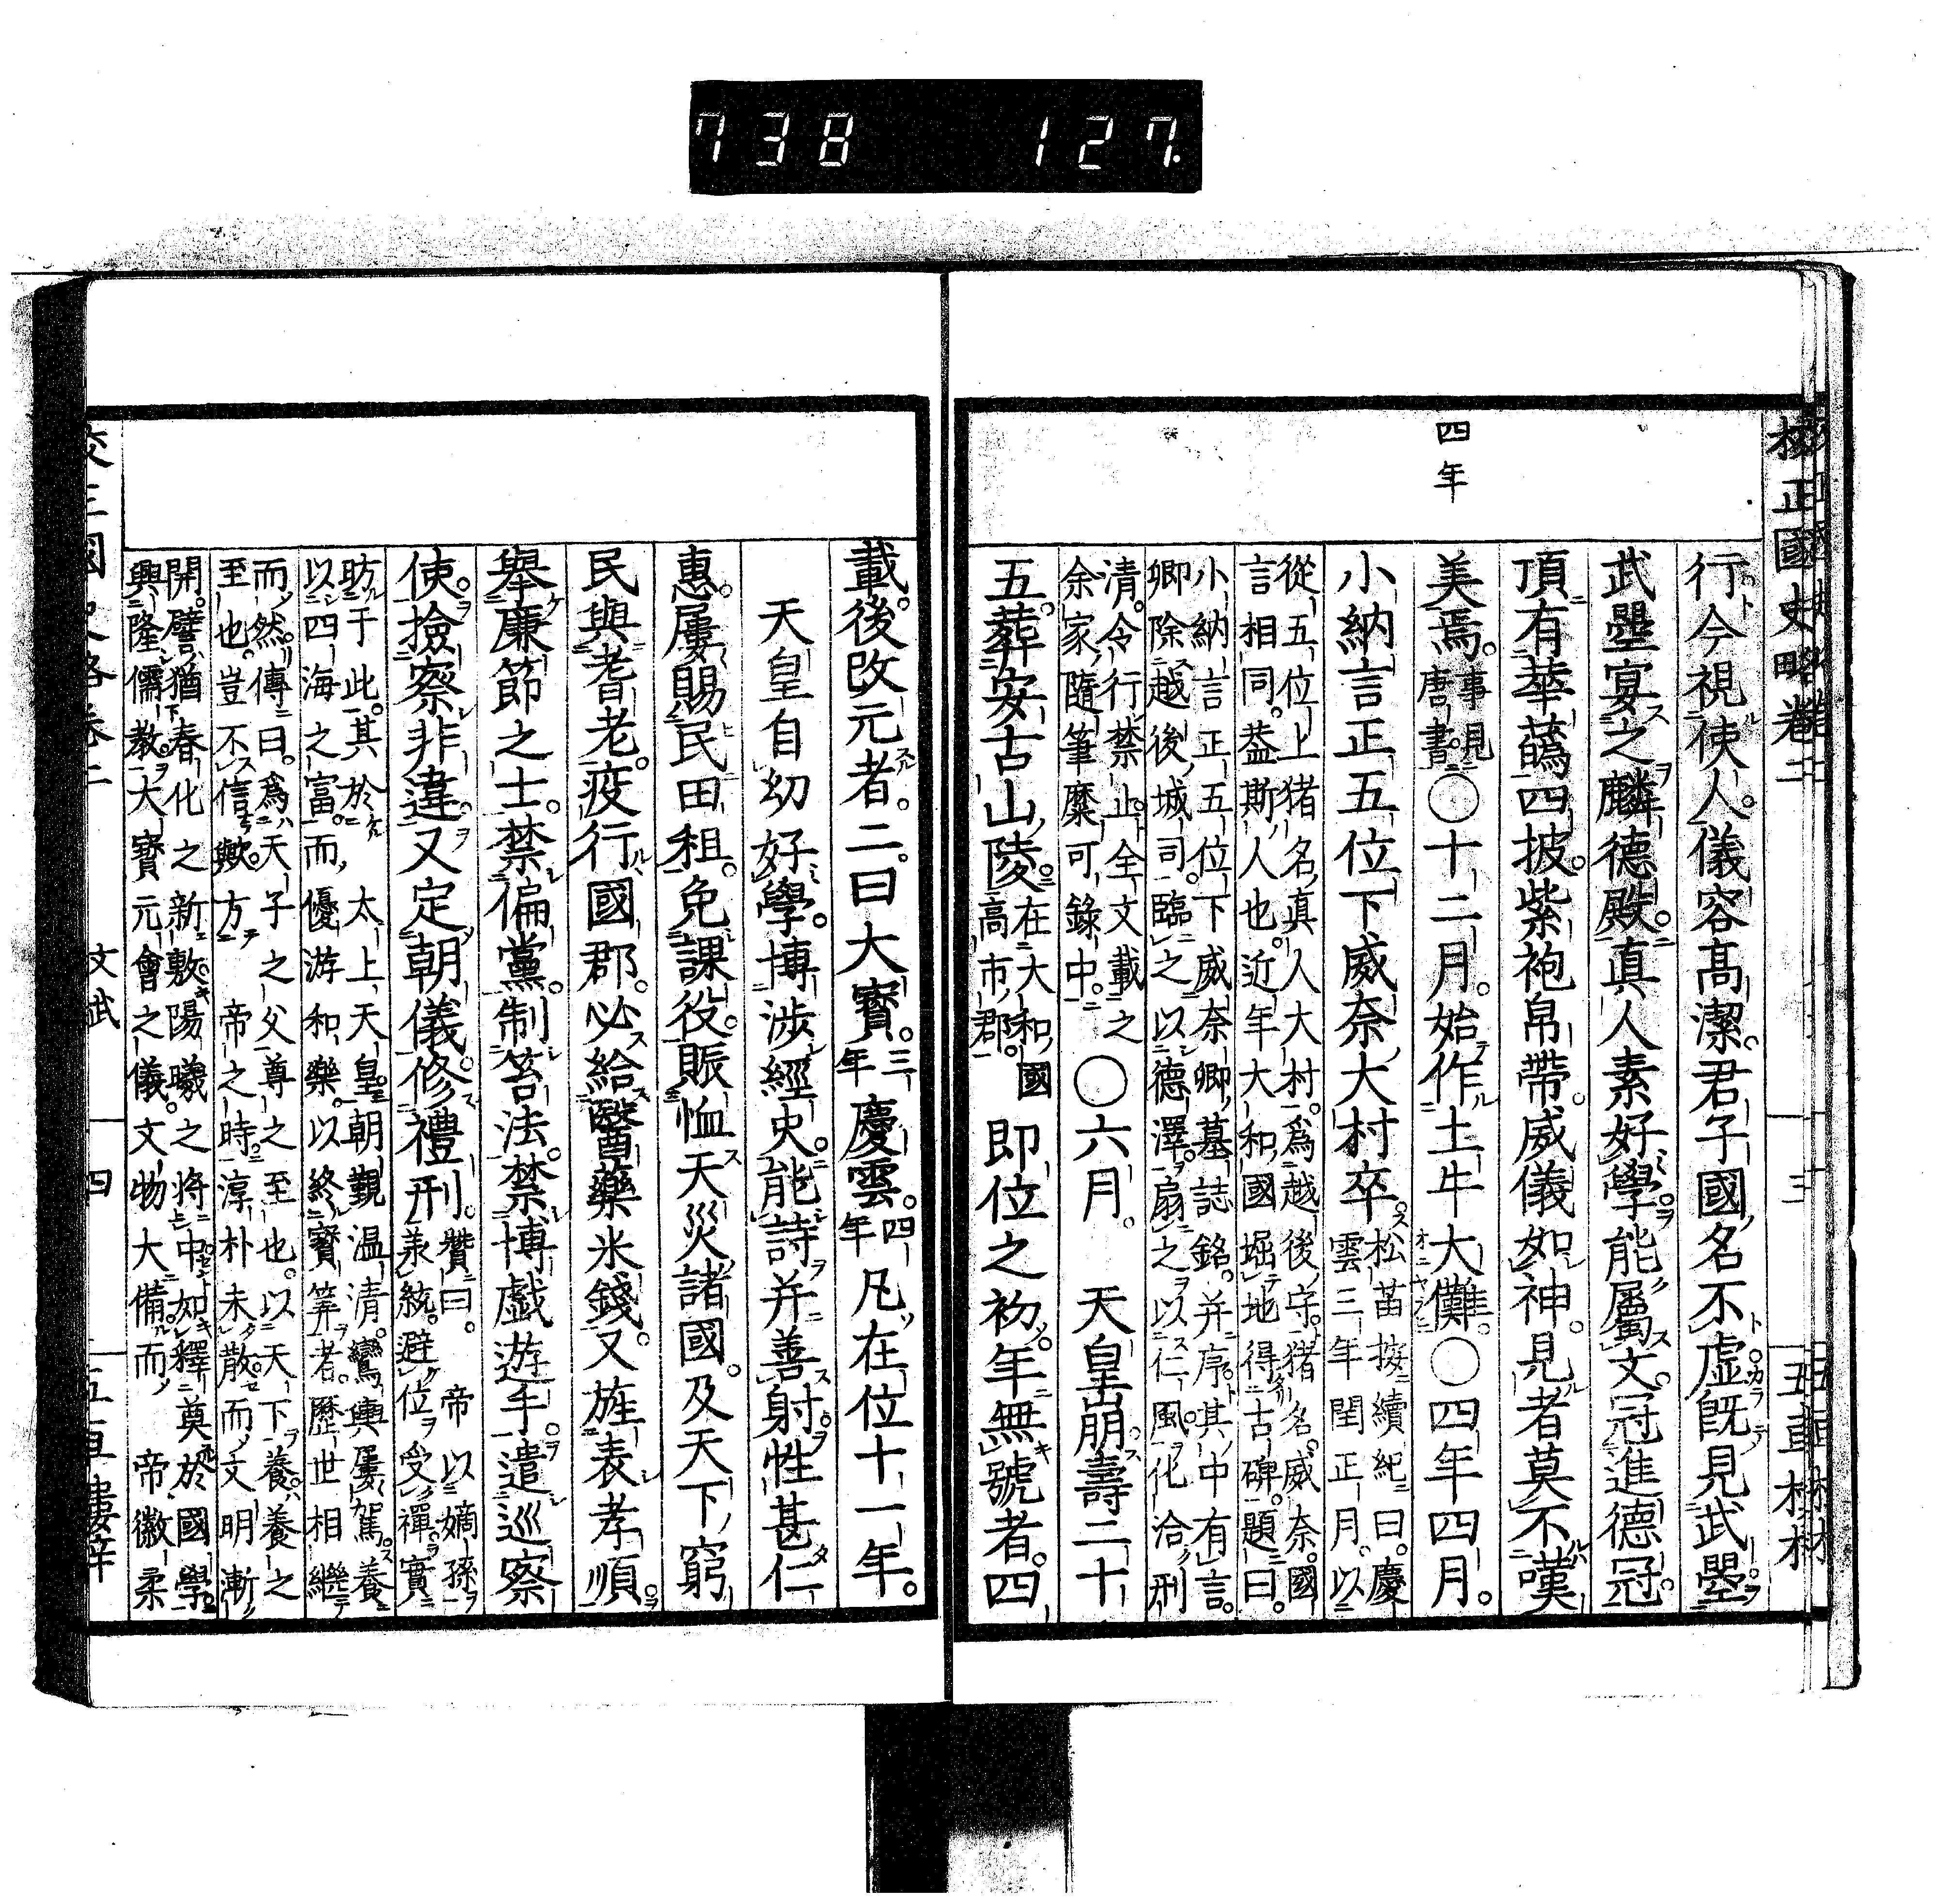 738 127.
校正國史略卷二
三
五車樓梓
四年
行今視使人。儀容高潔君子國名不虛既見武曌
武曌宴之麟德殿。真人素好學能屬文。冠進德冠。
頂有華蘤四披。紫袍帛帶。威儀如神。見者莫不嘆
美焉。事見唐書。○十二月。始作土牛大儺。○四年四月。
小納言正五位下威奈大村卒。松苗按續紀曰。慶雲三年閏正月。以
從五位上猪名真人大村。爲越後守。猪名。威奈。國
言相同。蓋斯人也。近年大和國堀地得古碑。題曰。
小納言正五位下威奈卿墓誌銘。并序。其中有言。
卿除越後城司。臨之以德澤。扇之以仁風。化洽刑
清。令行禁止。全文載之
余家隨筆糜可錄中。○六月。天皇崩。壽二十
五。葬安古山陵。在大和國高市郡。即位之初。年無號者。四
載。後改元者。二。曰大寶。三年慶雲。四年凡在位十一年。
天皇自幼好學。博涉經史。能詩并善射。性甚仁
惠。屢賜民田租。免課役。賑恤天災諸國。及天下窮
民與耆老。疫行國郡。必給醫藥米錢。又旌表孝順。
舉廉節之士。禁偏黨。制笞法。禁博戲遊手。遣巡察
使。撿察非違又定朝儀。修禮刑。贊曰。帝以嫡孫承統。避位受禪。實
昉于此。其於太上天皇。朝覲温凊。鸞輿屢駕。養
以四海之富。而優游和樂。以終寶筭者。歷世相繼
而然。傳曰。爲天子之父尊之至也。以天下養。養之
至也。豈不信歟。方帝之時。淳朴未散。而文明漸
開。譬猶春化之新敷。陽曦之將中。如釋奠於國學。
興隆儒教。大寶元會之儀。文物大備。而帝徽柔
校正國史略卷二
文武
四
五車樓梓